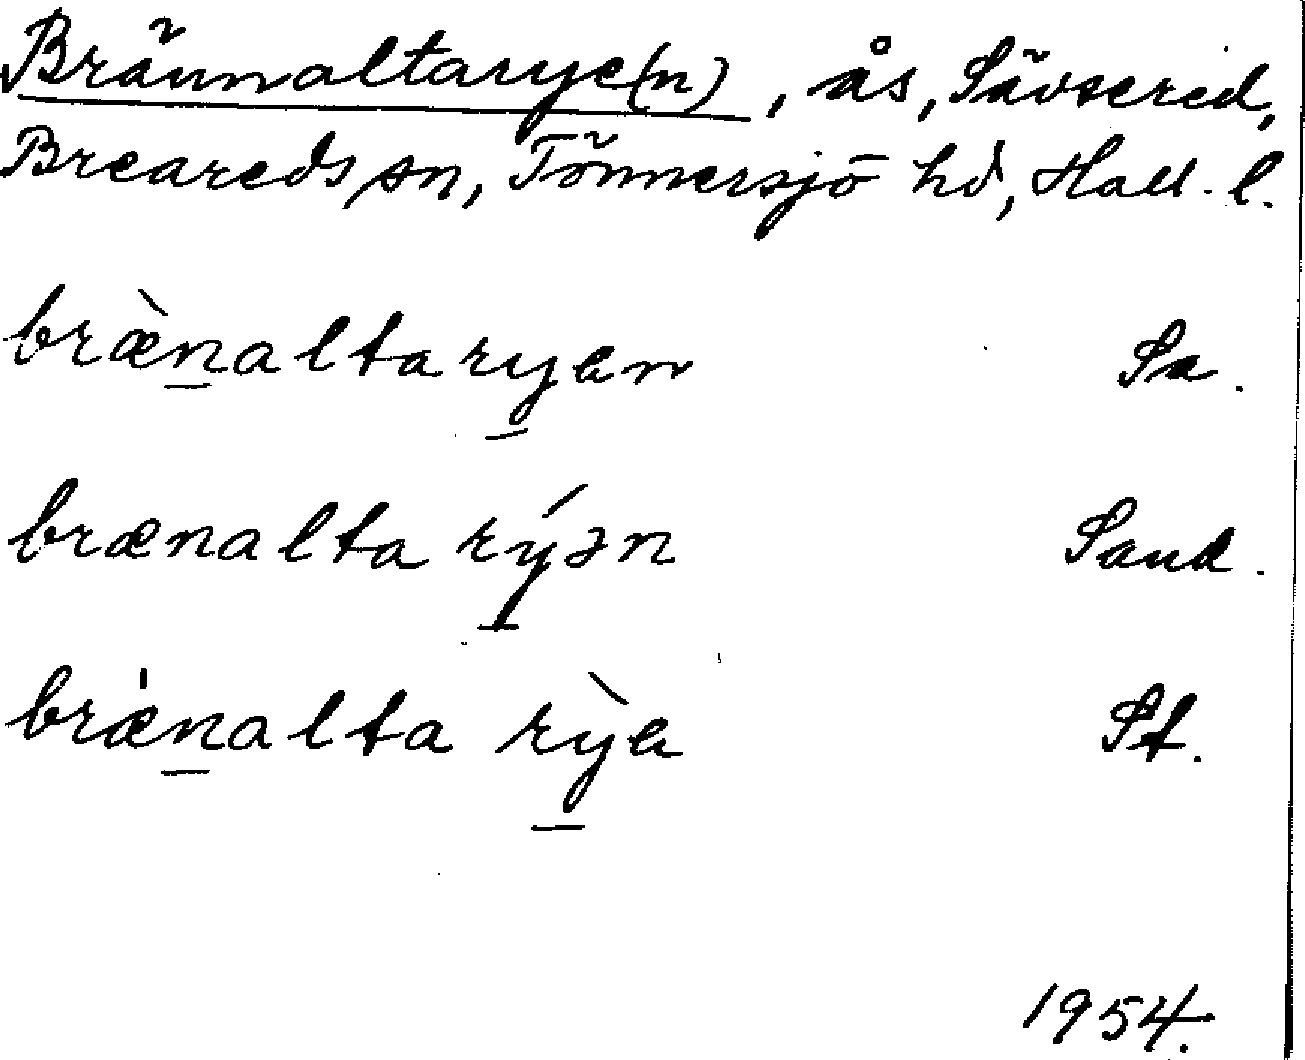 Brännaltarye(n), ås, Sävsered,
Breareds sn, Tönnersjö hd, Hall. l.
bræ̀n̲altary̲en Sa.
brænalta rý̲ən Sand.
bræ̍n̲alta rỳ̲e St.
1954.